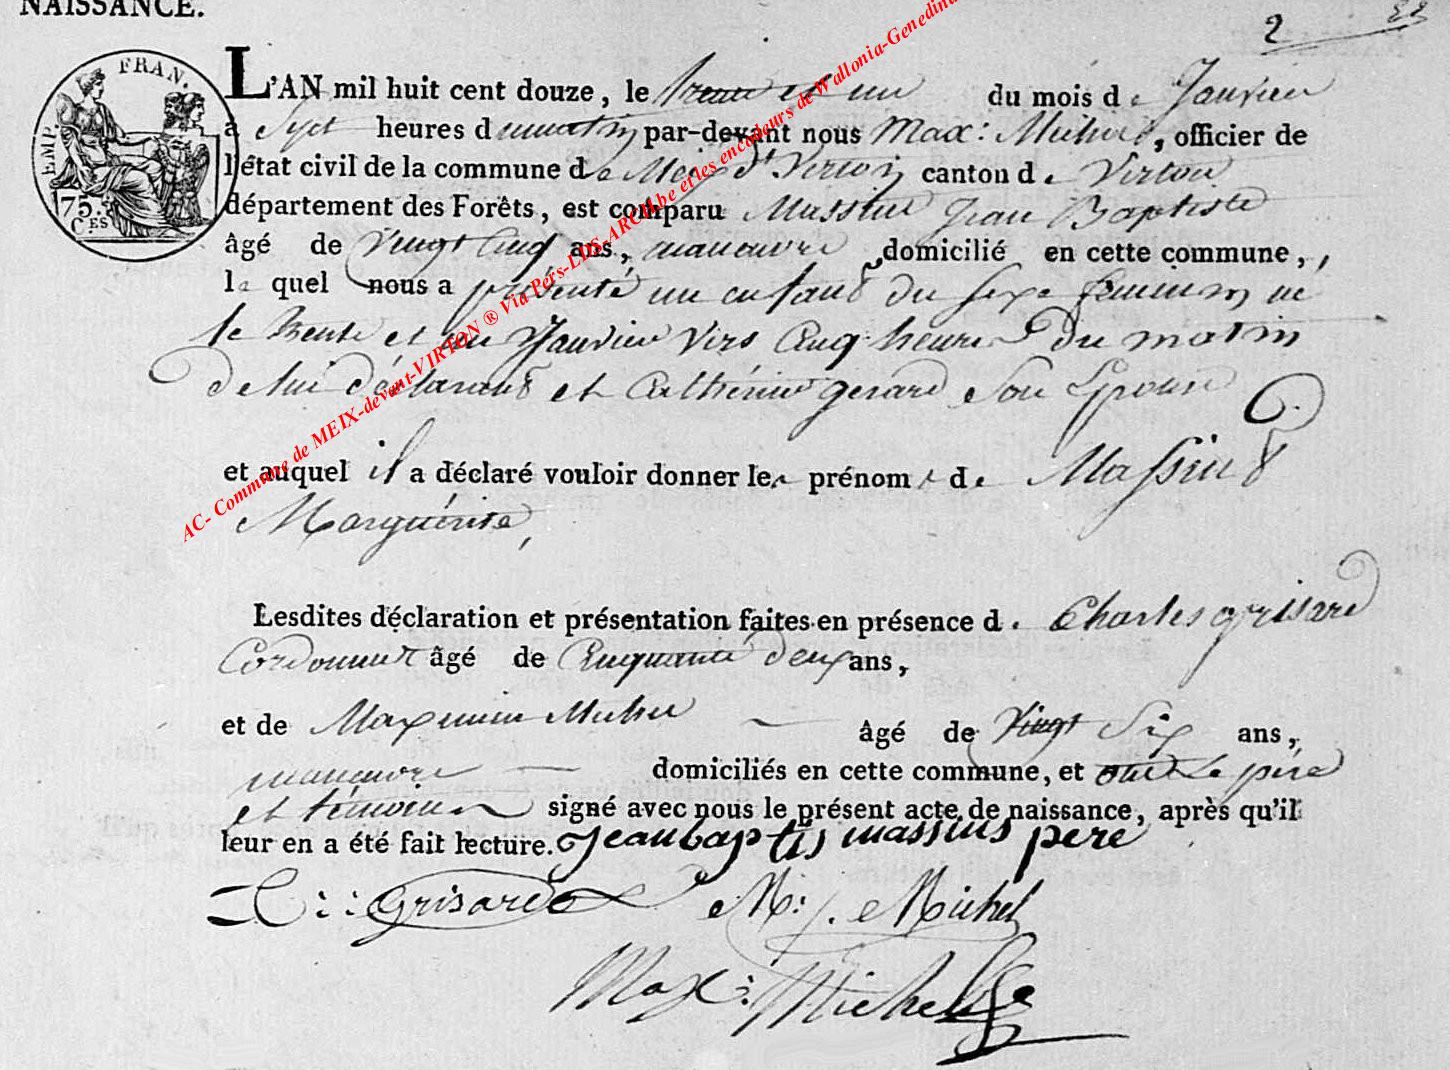 NAISSANCE.
2
EMP. FRAN.
75 C.ES
L'AN mil huit cent douze, le trente et un du mois de Janvier
a Sept heures du matin par-devant nous Max: Michel, officier de
l'état civil de la commune de Meix dt Virton canton de Virton
département des Forêts, est comparu Massius Jean Baptiste
âgé de Vingt Cinq ans, manœuvre domicilié en cette commune,,
le quel nous a présenté un enfant du sexe feminin né
le trente et un Janvier Vers Cinq heures du matin
de lui déclarant et Cathérine gerard son Epouse
et auquel il a déclaré vouloir donner les prénoms de Massius
Marguérite,
Lesdites déclaration et présentation faites en présence de Charles grisard
Cordonnier âgé de Cinquante deux ans,
et de Maximin Michel âgé de Vingt Six ans,
manœuvre domiciliés en cette commune, et ont Le père
et témoins signé avec nous le présent acte de naissance, après qu'il
leur en a été fait lecture. Jean baptis massius pere
C:: Grisard M: J. Michel
Max: Michel
AC- Commune de MEIX-devant-VIRTON ® Via Pers-LDS-ARCH.be et les encodeurs de Wallonia-Genedina